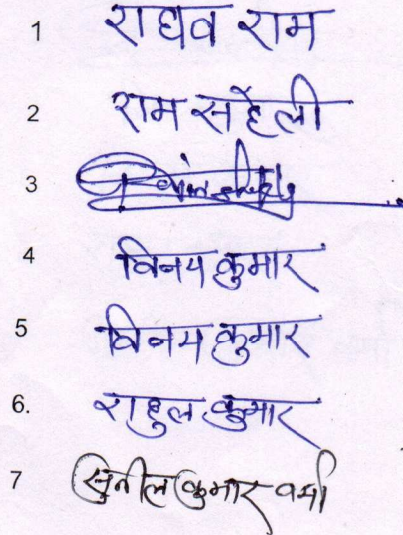 1 राघव राम
2 राम सहेली
3
4 विनय कुमार
5 विनय कुमार
6. राहुल कुमार
7 सुनील कुमार वर्मा